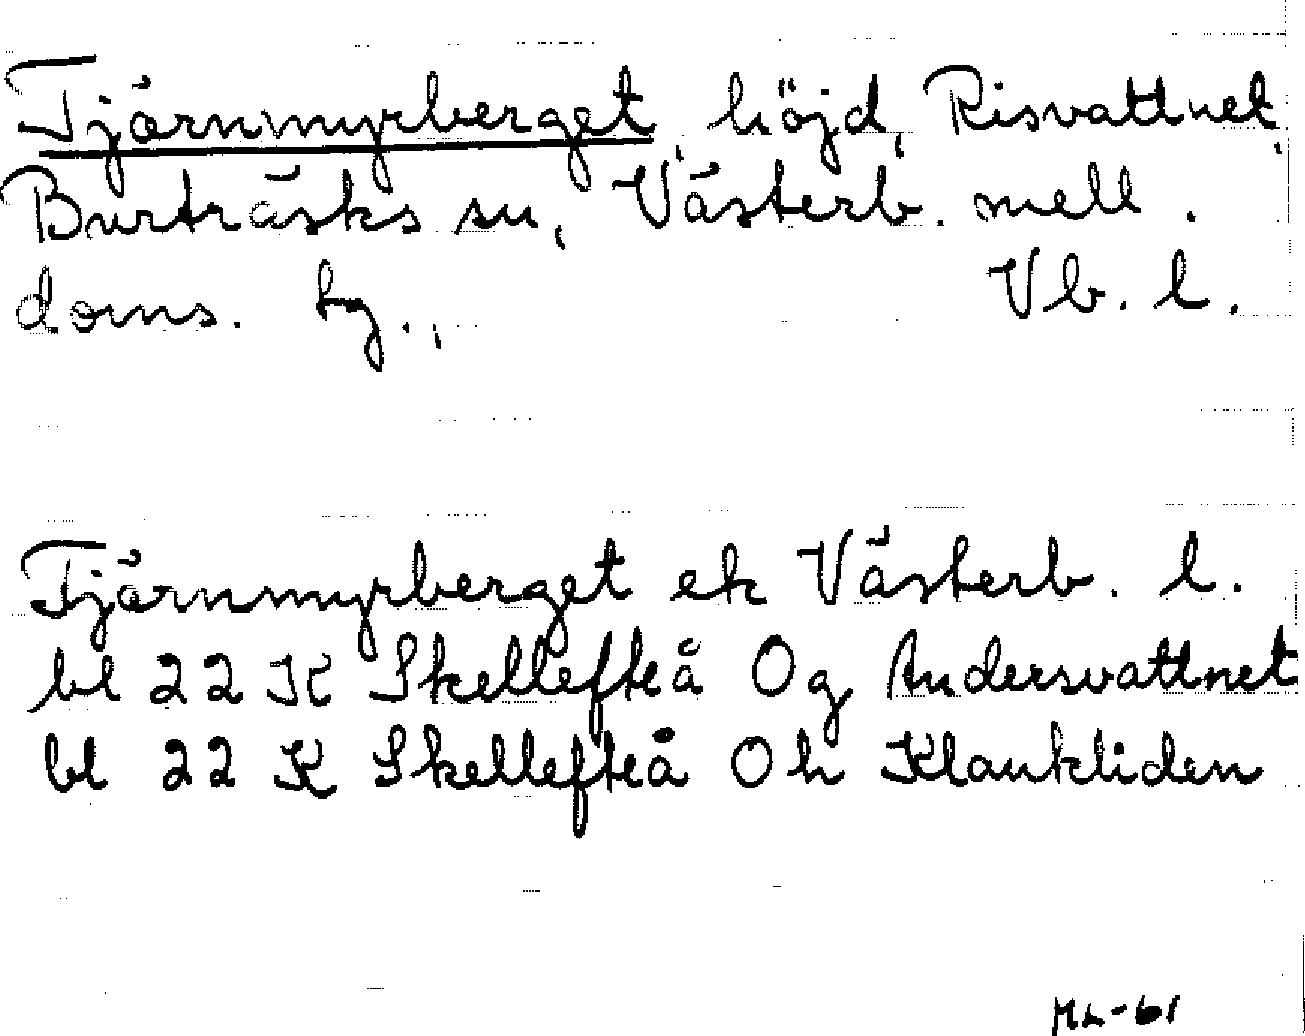 Tjärnmyrberget, höjd, Risvattnet,
Burträsks sn, Västerb. mell.
doms. tg., Vb. l.
Tjärnmyrberget ek Västerb. l.
bl 22 K Skellefteå Og Andersvattnet
bl 22 K Skellefteå Oh Klaukliden
ML-61